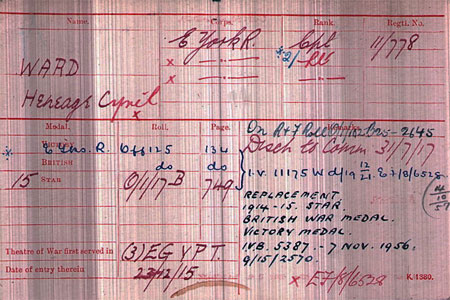 Name. Corps. Rank. Regtl. No.
E York R. Cpl 11/778
WARD x — " — x 2/Lt
Heneage Cyril x — " —
x
Medal. Roll. Page.
On R & F Roll
Disch to Comm 31/7/17
VICTORY x E Yks. R. Off 125 134
BRITISH do do
15 STAR O/1/17 B 749
I.V. 11175 W d/19 12/21. E.f/8/6528.
REPLACEMENT
1914-15. STAR.
BRITISH WAR MEDAL.
VICTORY MEDAL.
IVB. 5387. - 7 NOV. 1956.
9/15/2570.
Theatre of War first served in (3) EGYPT.
Date of entry therein 23/12/15
x EF/8/6528 K. 1380.